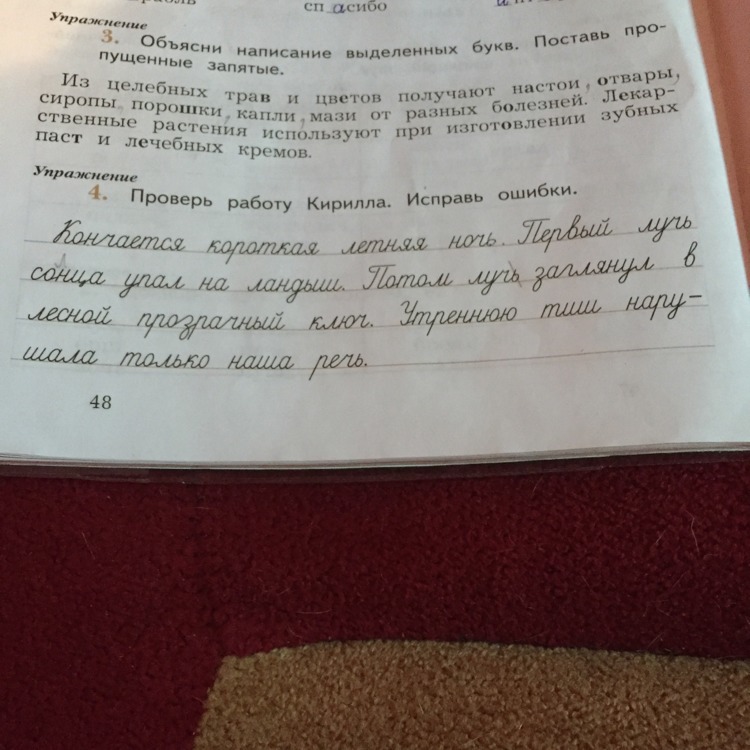 сп асибо
Упражнение
3. Объясни написание выделенных букв. Поставь про-
пущенные запятые.
Из целебных трав и цветов получают настои, отвары,
сиропы, порошки, капли, мази от разных болезней. Лекар-
ственные растения используют при изготовлении зубных
паст и лечебных кремов.
Упражнение
4. Проверь работу Кирилла. Исправь ошибки.
Кончается короткая летняя ночь. Первый лучь
сонца упал на ландыш. Потом лучь заглянул в
лесной прозрачный ключ. Утреннюю тиш нару-
шала только наша речь.
48